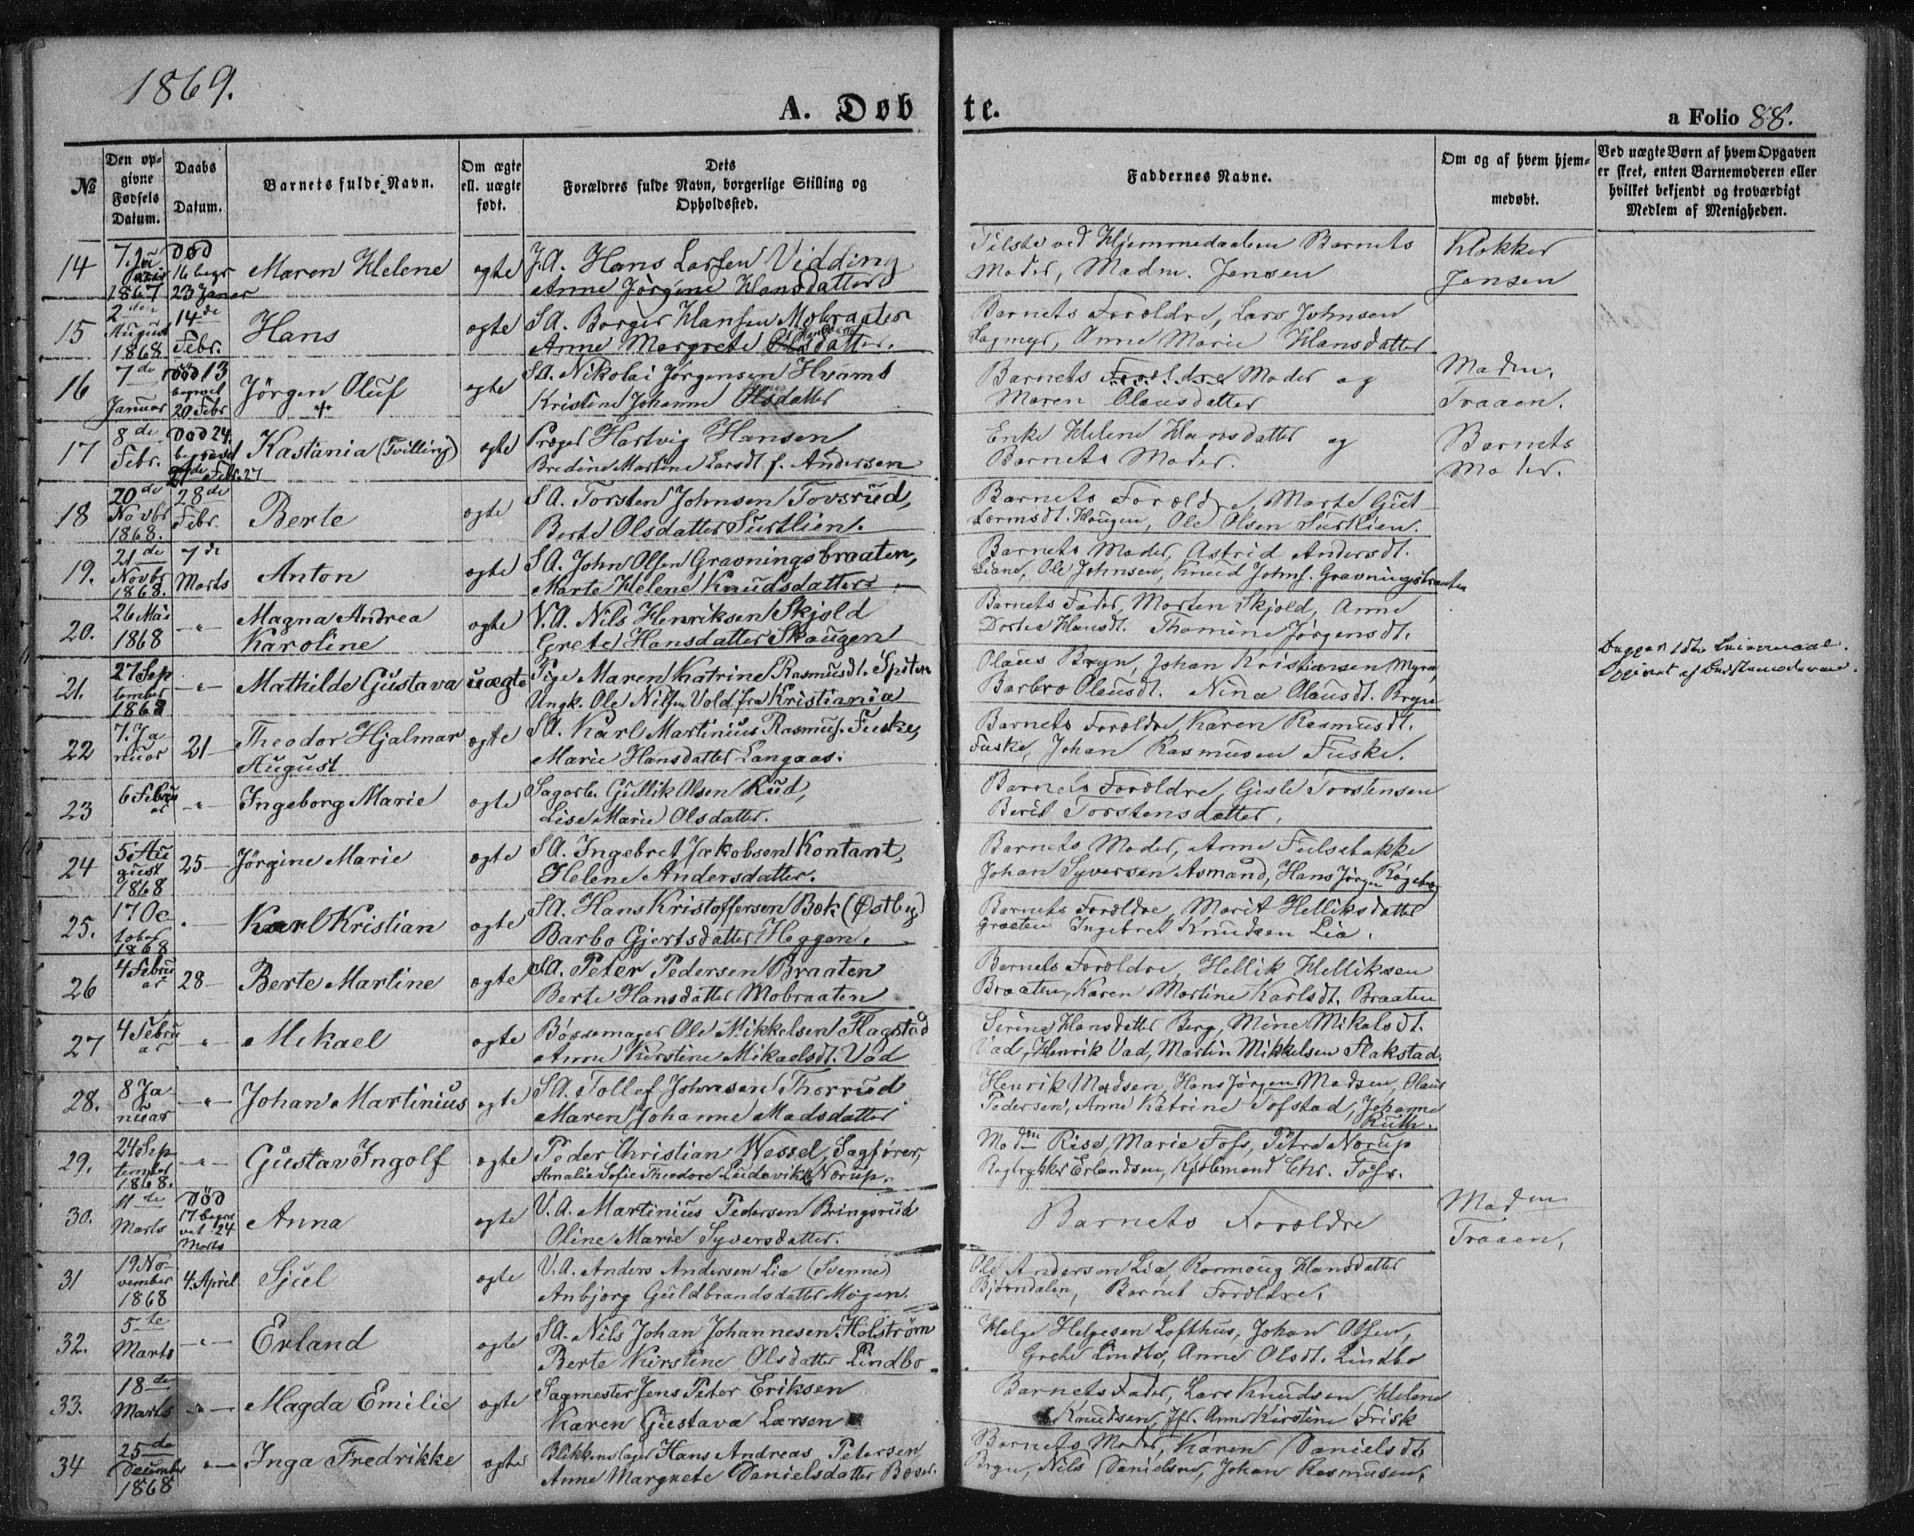 1869.
A. Døbte.
a Folio 88.
№
Den opgivne Fødsels Datum.
Daabs Datum.
Barnets fulde Navn.
Om ægte ell. uægte født.
Dets Forældres fulde Navn, borgerlige Stilling og Opholdssted.
Faddernes Navne.
Om og af hvem hjemmedøbt.
Ved uægte Børn af hvem Opgaven er skeet, enten Barnemoderen eller hvilket bekjendt og troværdigt Medlem af Menigheden.
14 7. Januar 1867 Død 16 begr 23 Januar Maren Helene ægte J.A. Hans Larsen Vidding
Anne Jørgine Hansdatter
Tilstede ved Hjemmedaaben Barnets
Moder, Madm. Jensen
Klokker
Jensen
15 2den August 1868 14de Febr. Hans ægte SA. Borger Hansen Mobraaten
Anne Margrete datter.
Barnets Forældre, Lars Johnsen
Hagmyr, Anne Marie Hansdatter
16 7de Januar Død 13 begravet 20 Febr Jörgen Oluf ægte SA. Nikolai Jörgensen Hvams
Kristine Johanne Olsdatter
Barnets Forældre Moder og
Maren Olausdatter
Madm.
Traaen.
17 8de Febr. Død 24. begravet Febr. 27 Kastania (Tvilling) ægte Præger Hartvig Hansen
Bredine Martine Larsdt. f. Andersen
Enke Helene Hansdatter og
Barnets Moder.
Barnets
Moder.
18 20de Novbr 1868. 28de Febr. Berte ægte SA. Torsten Johnsen Tovsrud,
Berte Olsdatter Surtlien.
Barnets Foræld re, Marte Gut
tormsdt. Haugen, Ole Olsen Surtlien.
19. 21de Novbr 1868. 7de Marts Anton ægte SA. John Olsen Gravningsbraaten,
Marte Helene Knudsdatter
Barnets Moder, Astrid Andersdt.
Liane, Ole Johnsen, Knud Johns. Gravningsbraaten
20. 26 Mai 1868 -"- Magna Andrea
Karoline ægte V.A. Nils Henriksen Skjold
Grete Hansdatter Skaugen
Barnets Fader, Morten Skjold, Anne
Dortea Hansdt. Thomine Jørgensdt.
21. 27 September 1868 -"- Mathilde Gustava uægte Pige Maren Katrine Rasmusdt. Spiten
Ungk. Ole Nilsen Vold fra Kristiania
Olaus Bryn, Johan Kristiansen Myra,
Barbro Olausdt. Nina Olausdt. Bryn
Begges 1ste Leiermaal.
Opgivet af
22 7. Januar 21- Theodor Hjalmar
August ægte SA. Karl Martinius Rasmus. Fuske,
Marie Hansdatter Langaas.
Barnets Forældre, Karen Rasmusdt.
Fuske, Johan Rasmusen Fuske.
23 6 Februar -"- Ingeborg Marie ægte Sagarb. Gullik Olsen Rud,
Lise Marie Olsdatter.
Barnets Forældre, Gisle Torstensen
Berit Torstensdatter.
24 5 August 1868 25- Jørgine Marie ægte SA. Ingebret Jakobsen Kontant,
Helene Andersdatter.
Barnets Moder, Anne
Johan Syversen Asmand, Hans Jörgen
25. 17 October 1868 " Karl Kristian ægte SA. Hans Kristoffersen Bøk (Østby)
Barbo Gjertsdatter Heggen.
Barnets Forældre, Marit Helliksdatter
Ingebret Knudsen Lia.
26 4 Februar 28- Berte Martine ægte SA. Peter Pedersen Braaten
Berte Hansdatter Mobraaten
Barnets Forældre, Hellik Helliksen
Braaten, Karen Martine Karlsdt. Braaten
27 4 Februar -"- Mikael ægte Bøssemager Ole Mikkelsen Flagstad
Anne Kirstine Mikaelsdt. Vad
Serine Hansdatter Berg, Mine Mikalsdt.
Vad, Henrik Vad, Martin Mikkelsen Flakstad.
28. 8 Januar -"- Johan Martinius ægte SA. Tollef Johnsen Thorrud
Maren Johanne Madsdatter
Henrik Madsen, Hans Jørgen Madsen, Olaus
Pedersen, Anne Katrine Tofstad, Johanne
Ruth.
29. 24 September 1868. -"- Gustav Ingolf ægte Peder Christian Wessel, Sagfører,
Amalie Sofie Theodore Ludovikke Norup.
Madm Rise, Marie Foss, Petra Norup
Erlandsen, Kjøbmand Chr. Foss.
30. 11te Marts Død 17 begravet 24 Marts Anna ægte V.A. Martinius Pedersen Bringsrud
Oline Marie Syversdatter.
Barnets Forældre
Madm
Traaen.
31 19 November 1868 4. April Sjul ægte V.A. Anders Andersen Lia (Svenne)
Anbjorg Guldbrandsdatter Mogen.
Ole Andersen Lia, Ronnoug Hansdatter
Bjørndalen, Barnet Forældre.
32. 5te Marts -"- Erland ægte SA. Nils Johan Johannesen Holstrøm
Berte Kirstine Olsdatter Lindbo
Helge Helgesen Lofthus, Johan Olsen,
Grete Lindbo, Anne Olsdt. Lindbo
33. 18de Marts -"- Magda Emilie ægte Sagmester Jens Peter Eriksen
Karen Gustava Larsen
Barnets Fader, Lars Knudsen, Helene
Knudsen, Jfr. Anne Kirstine Frisk
34 25de December 1868 "- Inga Fredrikke ægte Blikkenslager Hans Andreas Petersen
Anne Margrete Danielsdatter
Barnets Moder, Karen Danielsdt.
Bryn, Nils Danielsen, Johan Rasmusen.